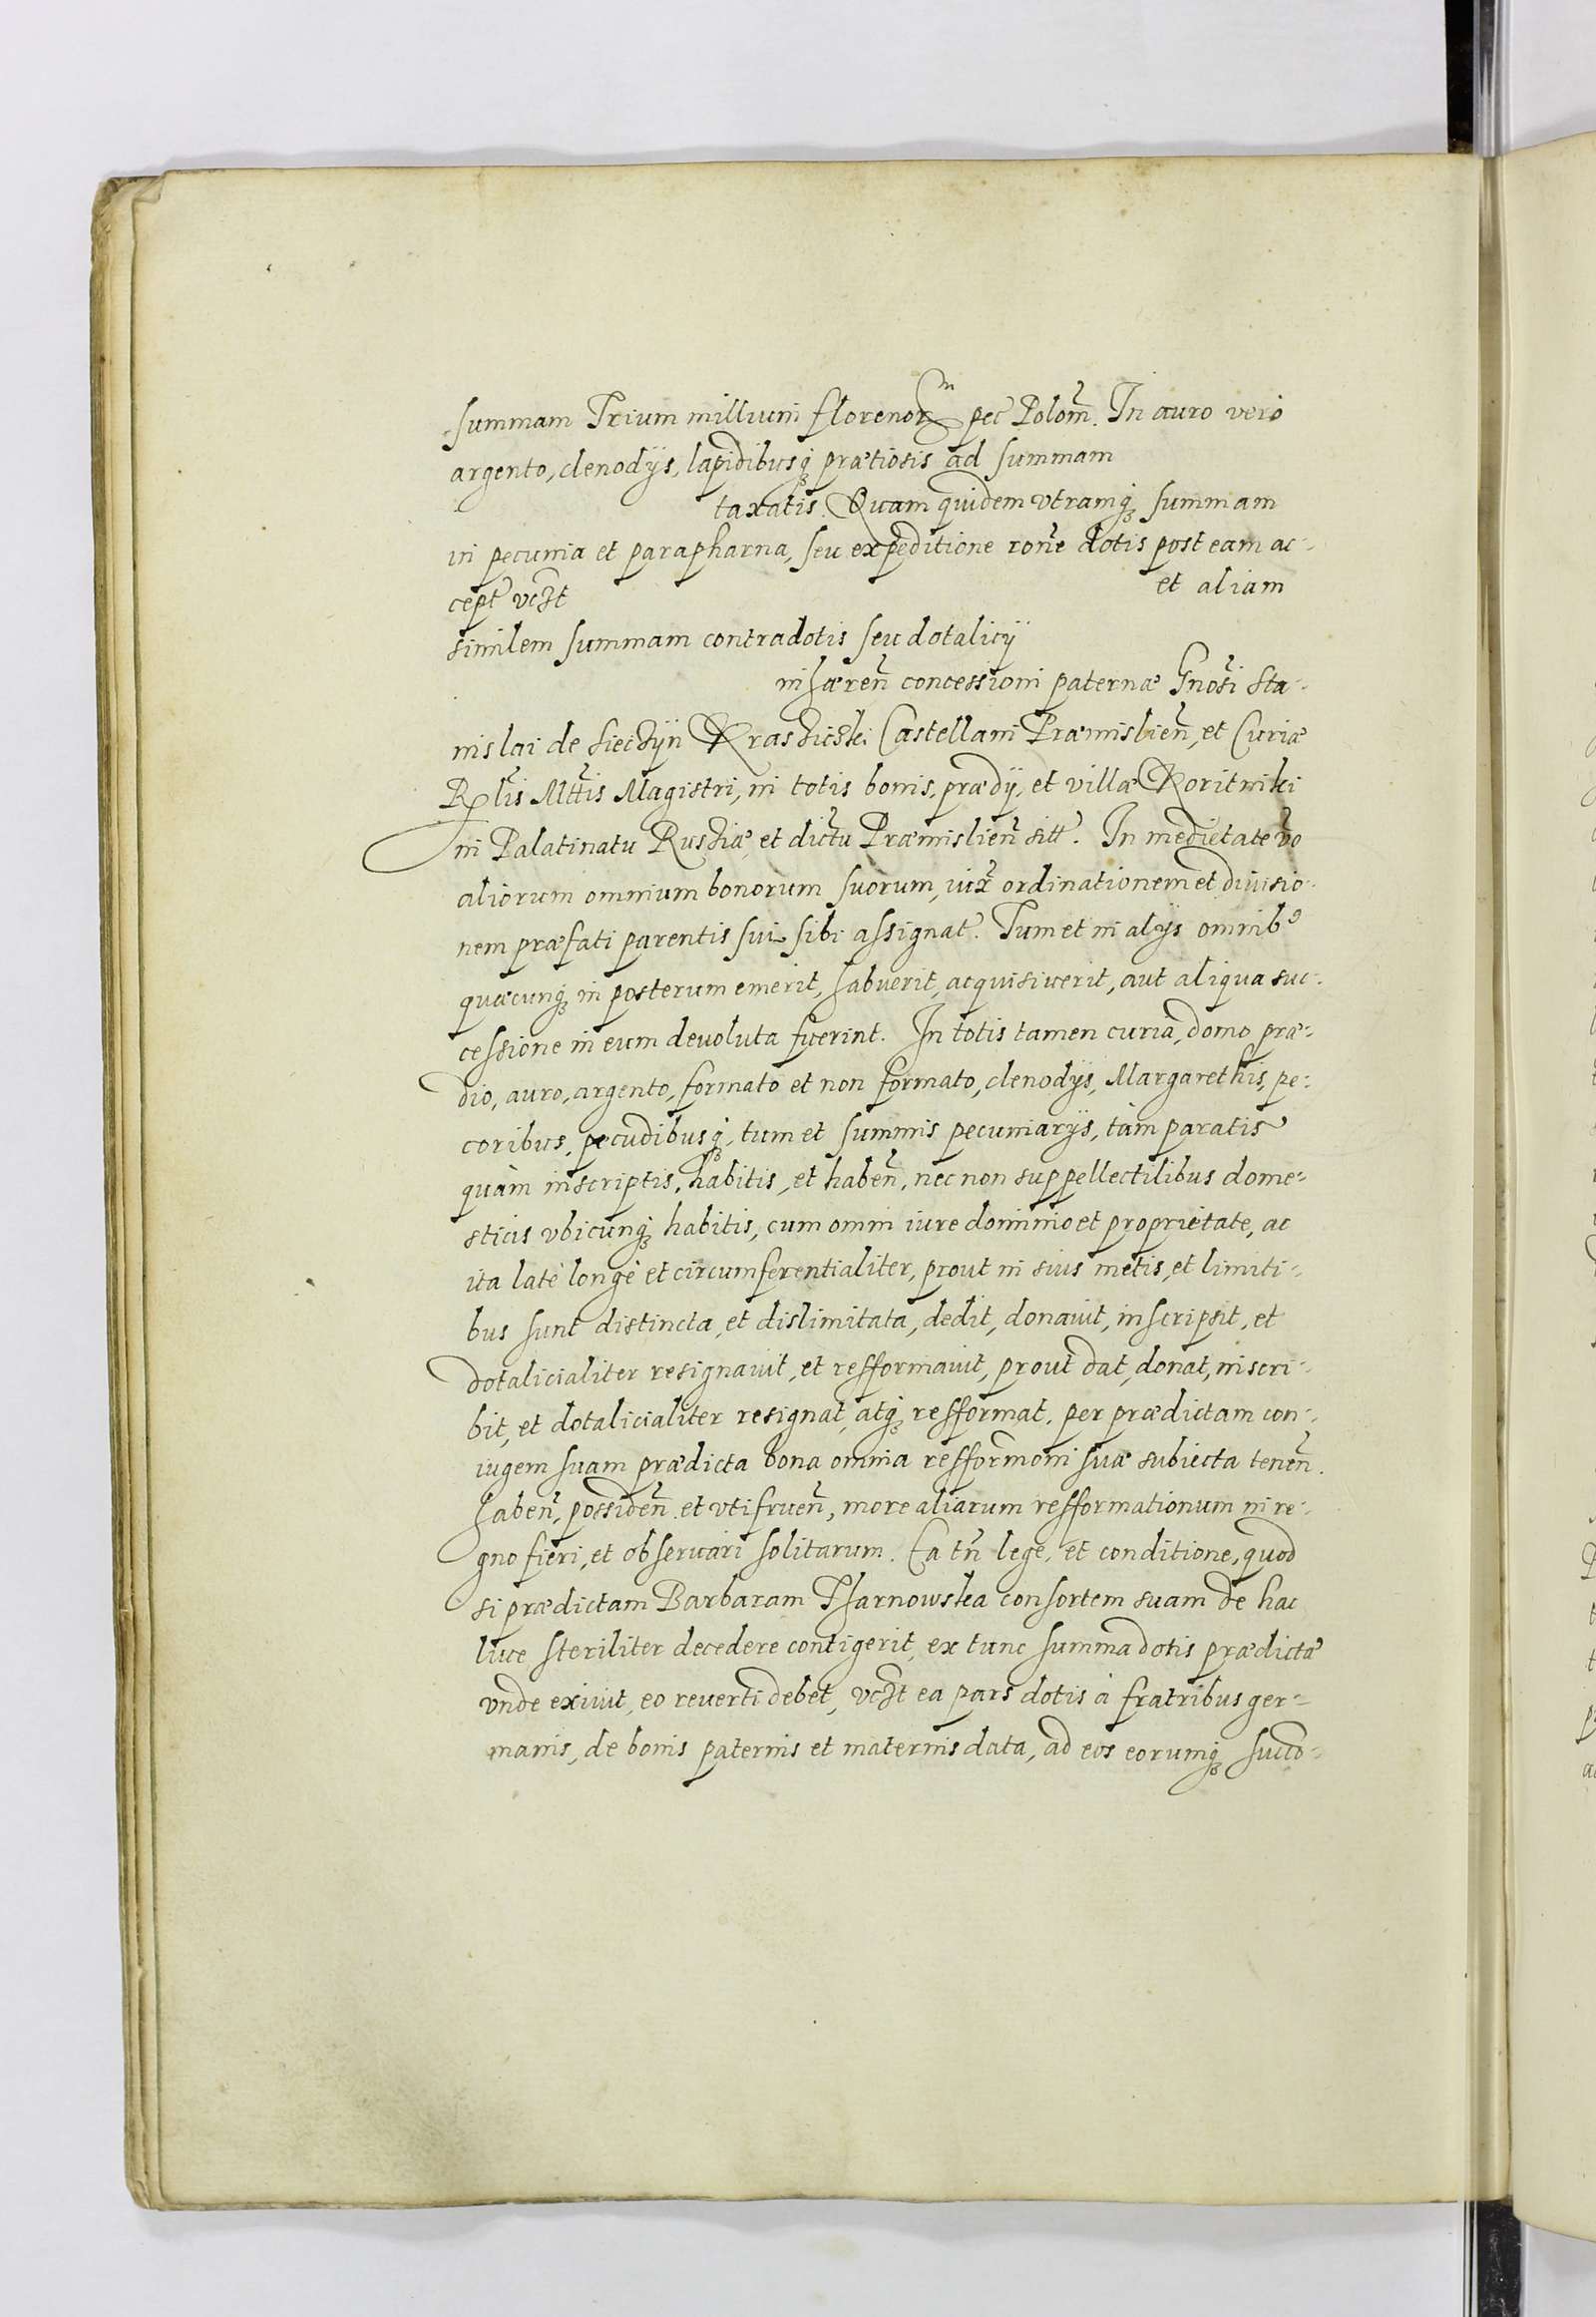 summam Trium millium florenorꝝ pec̃ Polom̃. In auro vero
argento, clenodÿs, lapidibusq; prætiosis ad summam
taxatis. Quam quidem vtramq; summam
in pecunia et parapharna, seu expeditione rone᷉ dotis post eam ac-
cept᷉ vczt et aliam
similem summam contradotis seu dotalicÿ
inhæren᷉ concessioni paternæ Gnosi᷉ Sta-
nislai de Sieczÿn Krasziczki Castellani Præmislien᷉, et Curiæ
R᷉lis Mt᷉tis Magistri, in totis bonis, prædÿ, et villæ Koritniki
in Palatinatu Rusziæ, et dictu᷉ Præmislien᷉ sitt᷉. In medietate v᷉o
aliorum omnium bonorum suorum, iux᷉ ordinationem et diuisio-
nem præfati parentis sui sibi assignat᷉. Tum et in alÿs omnibꝰ
quæcunq; in posterum emerit, habuerit, acquisiuerit, aut aliqua suc-
cessione in eum deuoluta fuerint. In totis tamen curia, domo præ-
dio, auro, argento, formato et non formato, clenodÿs, Margarethis, pe-
coribus, pecudibusq;, tum et summis pecuniarÿs, tàm paratis
quàm inscriptis, habitis, et haben᷉, nec non suppellectilibus dome-
sticis vbicunq; habitis, cum omni iure dominio et proprietate, ac
ita latè longè et circumferentialiter, prout in suis metis, et limiti-
bus sunt distincta, et dislimitata, dedit, donauit, inscripsit, et
dotalicialiter resignauit, et refformauit, prout dat, donat, inscri-
bit, et dotalicialiter resignat, atq; refformat, per prædictam con-
iugem suam prædicta bona omnia refformoni suæ subiecta tenen᷉.
haben᷉, possiden᷉ et vtifruen᷉, more aliarum refformationum in re-
gno fieri, et obseruari solitarum. Ea tn᷉ lege, et conditione, quod
si prædictam Barbaram Tharnowska consortem suam de hac
luce steriliter decedere contigerit, ex tunc summa dotis prædictæ
vnde exiuit, eo reuerti debet, vczt ea pars dotis à fratribus ger-
manis, de bonis paternis et maternis data, ad eos eorumq; succo-